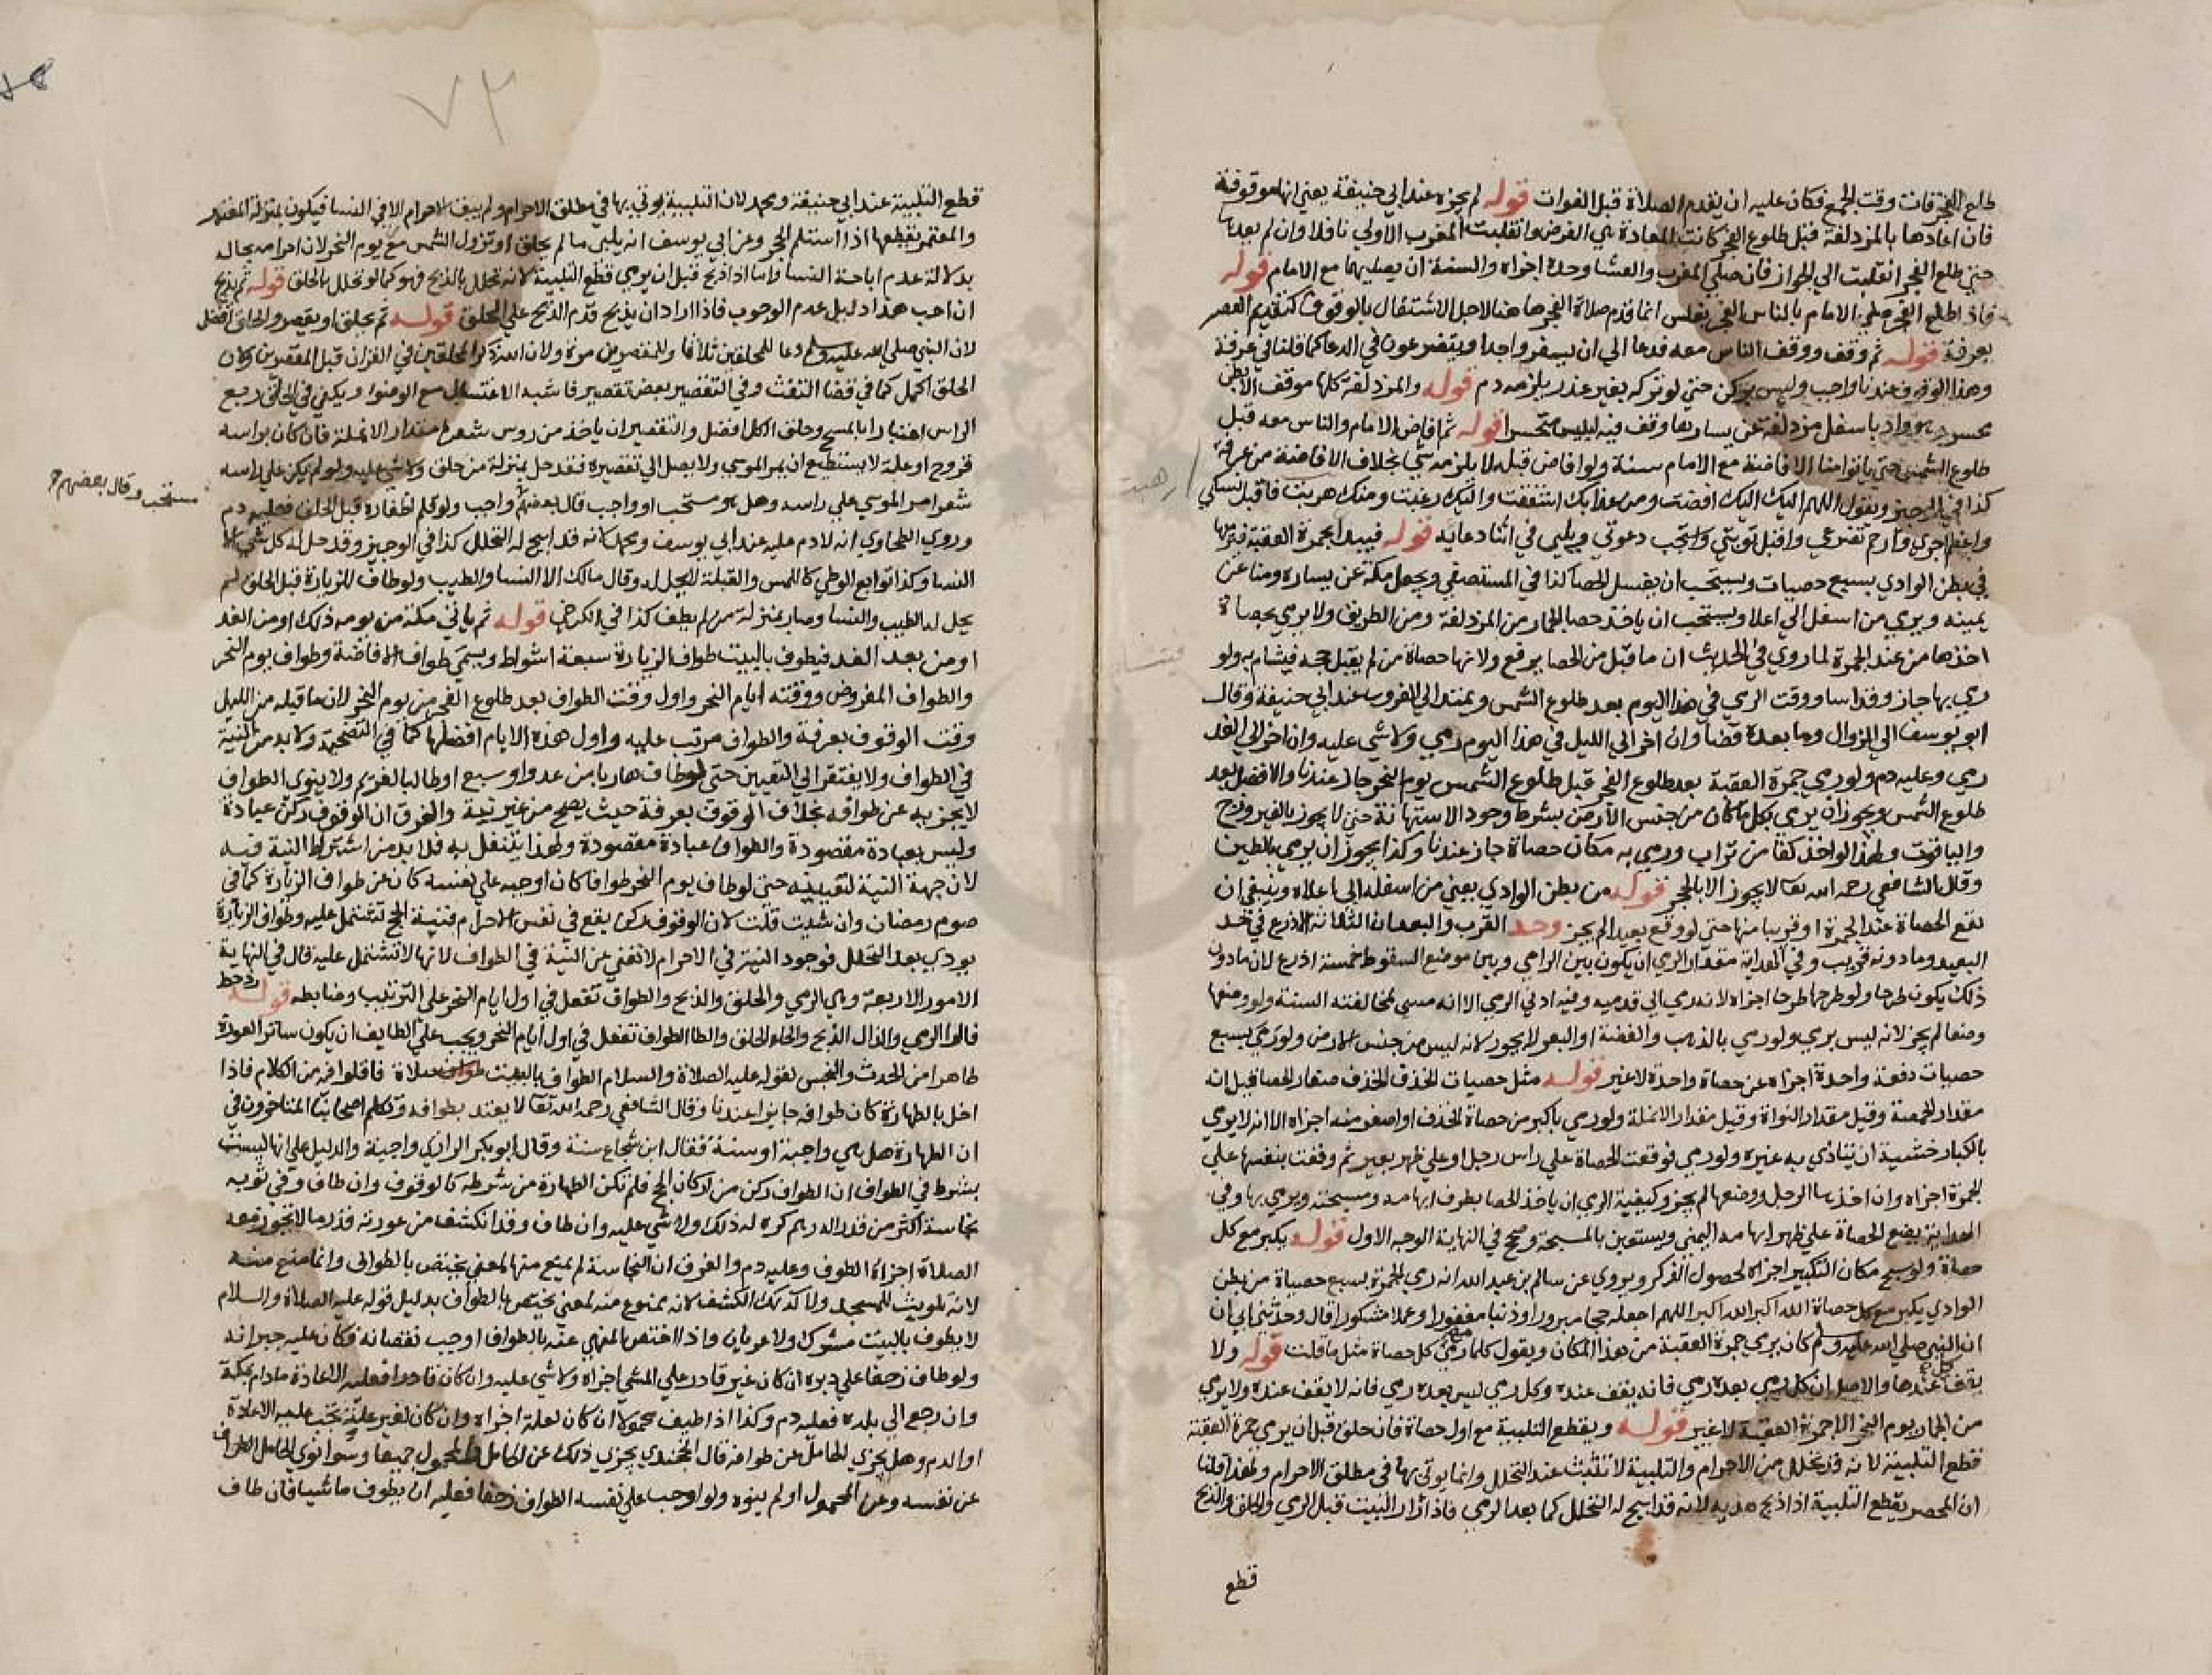 طلع الفجر فات وقت الجمع فكان عليه ان يقدم الصلاة قبل الفوات قوله لم يجزه عند ابي حنيفة يعني انها موقوفة
فان اعادها بالمزدلفة قبل طلوع الفجر كانت المعادة هي الفرض وانقلبت المغرب الاولي نافلة وان لم يعدها
حتي طلع الفجر انقلبت الي الجواز فان صلي المغرب والعشا وحده اجزاه والسنة ان يصليهما مع الامام قوله
فاذا طلع الفجر صلي الامام بالناس الفجر بغلس انما قدم صلاة الفجر هاهنا لاجل الاشتغال بالوقوف كتقديم العصر
بعرفة قوله ثم وقف ووقف الناس معه فدعا الي ان يسفر واجدا ويتضرعون في الدعا كما قلنا في عرفة
وهذا الوقوف عندنا واجب وليس بركن حتي لو تركه بغير عذر يلزمه دم قوله والمزدلفة كلها موقف الا بطن
محسر هو واد باسفل مزدلفة عن يسارها وقف فيه ابليس متحسرا قوله ثم افاض الامام والناس معه قبل
طلوع الشمس حتي ياتوا منا الافاضة مع الامام سنة ولو افاض قبله لا يلزمه شي بخلاف الافاضة من عرفة
كذا في الوجيز ويقول اللهم اليك افضت ومن عذابك اشفقت واليك رغبت ومنك هربت فاقبل نسكي
واعظم اجري وارحم تضرعي واقبل توبتي واستجب دعوتي ويلبي في اثنا دعايه قوله فيبدا بجمرة العقبة فيرميها
في بطن الوادي بسبع حصيات ويستحب ان يغسل الحصا كذا في المستصفي ويجعل مكة عن يساره ومنا عن
يمينه ويرمي من اسفل الي اعلا ويستحب ان ياخذ حصا الجمار من المزدلفة ومن الطريق ولا يرمي بحصاة
اخذها من عند الجمرة لما روي في الحديث ان ما قبل من الحصا يرفع ولانها حصاة من لم يقبل حجه فيتشام به ولو
رمي بها جاز وقد اسا ووقت الرمي في هذا اليوم بعد طلوع الشمس ويمتد الي الغروب عند ابي حنيفة وقال
ابو يوسف الي الزوال وما بعده قضا وان اخر الي الليل في هذا اليوم رمي ولا شي عليه وان اخر الي الغد
رمي وعليه دم ولو رمي جمرة العقبة بعد طلوع الفجر قبل طلوع الشمس يوم النحر جاز عندنا والافضل بعد
طلوع الشمس ويجوز ان يرمي بكل ما كان من جنس الارض بشرط وجود الاستهانة حتي لا يجوز بالفيروزج
والياقوت ولهذا لو اخذ كفا من تراب ورمي به مكان حصاة جاز عندنا وكذا يجوز ان يرمي بالطين
وقال الشافعي رحمه الله تعا لا يجوز الا بالحجر قوله من بطن الوادي يعني من اسفله الي اعلاه وينبغي ان
تقع الحصاة عند الجمرة او قريبا منها حتي لو وقع بعيدا لم يجز وحد القرب والبعد ان الثلاثة اذرع في حد
البعيد وما دونه قريب وفي الهداية مقدار الرمي ان يكون بين الرامي وبين موضع السقوط خمسة اذرع لان ما دون
ذلك يكون طرحا ولو طرحها طرحا اجزاه لانه رمي الي قدميه وفيه ادني الرمي الا انه مسي لمخالفته السنة ولو وضعها
وضعا لم يجز لانه ليس برمي ولو رمي بالذهب والفضة او البعر لا يجوز لانه ليس من جنس الارض ولو رمي بسبع
حصيات دفعة واحدة اجزاه عن حصاة واحدة لا غير قوله مثل حصيات الخذف الخذف صغار الحصا قيل انه
مقدار الحمصة وقيل مقدار النواة وقيل مقدار الانملة ولو رمي باكبر من حصاة الخذف او اصغر منه اجزاه الا انه لا يرمي
بالكبار خشية ان يتاذي به غيره ولو رمي فوقعت الحصاة علي راس رجل او علي ظهر بعير ثم وقعت بنفسها علي
الجمرة اجزاه وان اخذها الرجل ووضعها لم يجز وكيفية الرمي ان ياخذ الحصا بطرف ابهامه ومسبحته ويرمي بها وفي
الهداية يضع الحصاة علي ظهر ابهامه اليمني ويستعين بالمسبحة وصحح في النهاية الوجه الاول قوله يكبر مع كل
حصاة ولو سبح مكان التكبير اجزاه لحصول الذكر ويروي عن سالم بن عبد الله انه رمي الجمرة بسبع حصاة من بطن
الوادي يكبر مع كل حصاة الله اكبر الله اكبر اللهم اجعله حجا مبرورا وذنبا مغفورا وعملا مشكورا قال وحدثني ابي ان
ان النبي صلي الله عليه وسلم كان يرمي جمرة العقبة من هذا المكان ويقول كلما رمي كل حصاة مثل ما قلت قوله ولا
يقف عندها والاصل ان كل رمي بعده رمي فانه يقف عنده وكل رمي ليس بعده رمي فانه لا يقف عنده ولا يرمي
من الجمار يوم النحر الا جمرة العقبة لا غير قوله ويقطع التلبية مع اول حصاة فان حلق قبل ان يرمي جمرة العقبة
قطع التلبية لانه قد تحلل من الاحرام والتلبية لا تثبت عند التحلل وانما يوتي بها في مطلق الاحرام ولهذا قلنا
ان المحصر يقطع التلبية اذا ذبح هديه لانه قد ابيح له التحلل كما بعد الرمي فاذا زار البيت قبل الرمي والحلق والذبح
قطع
٧٣
قطع التلبية عند ابي حنيفة ومحمد لان التلبية يوتي بها في مطلق الاحرام ولم يبق الاحرام الا في النسا فيكون بمنزلة المعتمر
والمعتمر يقطعها اذا استلم الحجر وعن ابي يوسف انه يلبي ما لم يحلق او تزول الشمس من يوم النحر لان احرامه بحاله
بدلالة عدم اباحة النسا واما اذا ذبح قبل ان يرمي قطع التلبية لانه تحلل بالذبح فهو كما لو تحلل بالحلق قوله ثم يذبح
ان احب هذا دليل عدم الوجوب فاذا اراد ان يذبح قدم الذبح علي الحلق قوله ثم يحلق او يقصر والحلق افضل
لان النبي صلي الله عليه وسلم دعا للمحلقين ثلاثا وللمقصرين مرة ولان الله ذكر المحلقين في القران قبل المقصرين ولان
الحلق اكمل كما في قضا التفث وفي التقصير بعض تقصير فاشبه الاغتسال مع الوضوا ويكفي في الحلق ربع
الراس اعتبارا بالمسح وحلق الكل افضل والتقصير ان ياخذ من روس شعره مقدار الانملة فان كان براسه
قروح او علة لا يستطيع ان يمر الموسي ولا يصل الي تقصيره فقد حل بمنزلة من حلق ولا شي عليه ولو لم يكن علي راسه
شعر امر الموسي علي راسه وهل هو مستحب او واجب قال بعضهم واجب ولو قلم اظفاره قبل الحلق فعليه دم
مستحب وقال بعضهم
وروي الطحاوي انه لا دم عليه عند ابي يوسف ومحمد لانه قد ابيح له التحلل كذا في الوجيز وقد حل له كل شي الا
النسا وكذا توابع الوطي كاللمس والقبلة لا يحل له وقال مالك الا النسا والطيب ولو طاف للزيارة قبل الحلق لم
يحل له الطيب والنسا وصار بمنزلة من لم يطف كذا في الكرخي قوله ثم ياتي مكة من يومه ذلك او من الغد
او من بعد الغد فيطوف بالبيت طواف الزيارة سبعة اشواط ويسمي طواف الافاضة وطواف يوم النحر
والطواف المفروض ووقته ايام النحر واول وقت الطواف بعد طلوع الفجر من يوم النحر لان ما قبله من الليل
وقت الوقوف بعرفة والطواف مرتب عليه واول هذه الايام افضلها كما في التضحية ولا بد من النية
في الطواف ولا يفتقر الي التعيين حتي لو طاف هاربا من عدو او سبع او طالبا لغريم ولا ينوي الطواف
لا يجزيه عن طوافه بخلاف الوقوف بعرفة حيث يصح من غير نية والفرق ان الوقوف ركن عبادة
وليس بعبادة مقصودة والطواف عبادة مقصودة ولهذا يتنفل به فلا بد من اشتراط النية فيه
لان جهة النية لتعيينه حتي لو طاف يوم النحر طوافا كان اوجبه علي نفسه كان عن طواف الزيارة كما في
صوم رمضان وان شيت قلت لان الوقوف ركن يقع في نفس الاحرام فنية الحج تشتمل عليه وطواف الزيارة
يودي بعد التحلل فوجود النية في الاحرام لا تغني عن النية في الطواف لانها لا تشتمل عليه قال في النهاية
الامور الاربعة وهي الرمي والحلق والذبح والطواف تفعل في اول ايام النحر علي الترتيب وضابطه قوله رذحط
فالرا الرمي والذال الذبح والحاء الحلق والطا الطواف تفعل في اول ايام النحر ويجب علي الطايف ان يكون ساتر العورة
طاهرا من الحدث والنجس لقوله عليه الصلاة والسلام الطواف بالبيت صلاة فاقلوا فيه من الكلام فاذا
اخل بالطهارة كان طوافه جايزا عندنا وقال الشافعي رحمه الله تعا لا يعتد بطوافه وتكلم اصحابنا المتاخرون في
ان الطهارة هل هي واجبة او سنة فقال ابن شجاع سنة وقال ابو بكر الرازي واجبة والدليل علي انها ليست
بشرط في الطواف ان الطواف ركن من اركان الحج فلم تكن الطهارة من شرطه كالوقوف وان طاف وفي ثوبه
نجاسة اكثر من قدر الدرهم كره له ذلك ولا شي عليه وان طاف وقد انكشف من عورته قدر ما لا تجوز معه
الصلاة اجزاه الطوف وعليه دم والفرق ان النجاسة لم يمنع منها لمعني يختص بالطواف وانما منع منه
لانه تلويث للمسجد ولا كذلك الكشف لانه ممنوع منه لمعني يختص بالطواف بدليل قوله عليه الصلاة والسلام
لا يطوف بالبيت مشرك ولا عريان واذا اختص النهي عنه بالطواف اوجب نقصانه فكان عليه جبرانه
ولو طاف زحفا علي دبره ان كان غير قادر علي المشي اجزاه ولا شي عليه وان كان قادرا فعليه الاعادة ما دام بمكة
وان رجع الي بلده فعليه دم وكذا اذا طيف محمولا ان كان لعلة اجزاه وان كان لغير علة تجب عليه الاعادة
او الدم وهل يجزي الحامل عن طوافه قال الخجندي يجزي ذلك عن الحامل والمحمول جميعا وسوا نوي الحامل الطواف
عن نفسه وعن المحمول او لم ينوه ولو اوجب علي نفسه الطواف زحفا فعليه ان يطوف ماشيا فان طاف